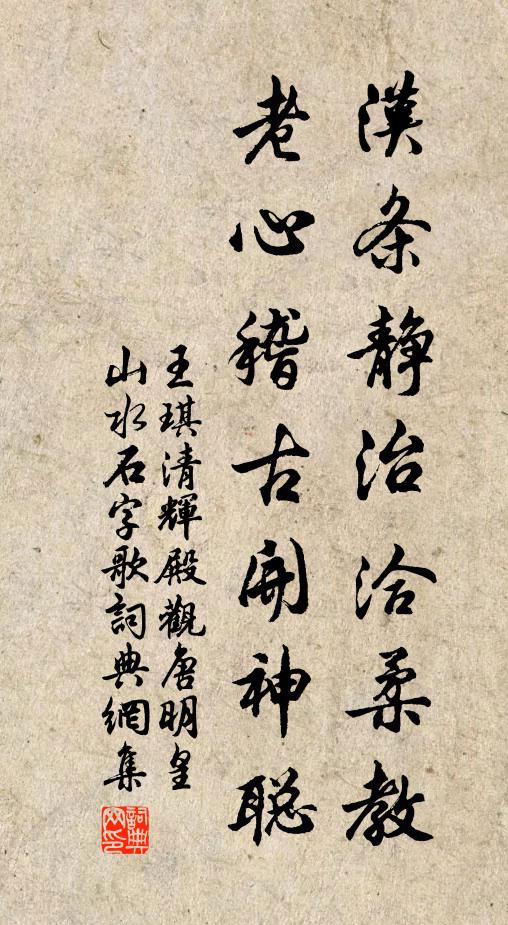 漢条静治洽柔教
老心稽古開神聡
王琪清輝殿觀唐明皇
山水石字歌詞典網集
詞典網印